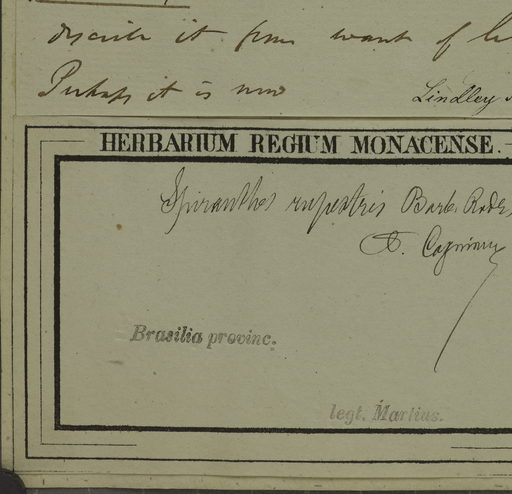 describe it from want of
Perhaps it is new
Lindley
HERBARIUM REGIUM MONACENSE.
Spiranthes rupestris Barb. Rodr.
A. Cogniaux
Brasilia provinc.
legt. Martius.